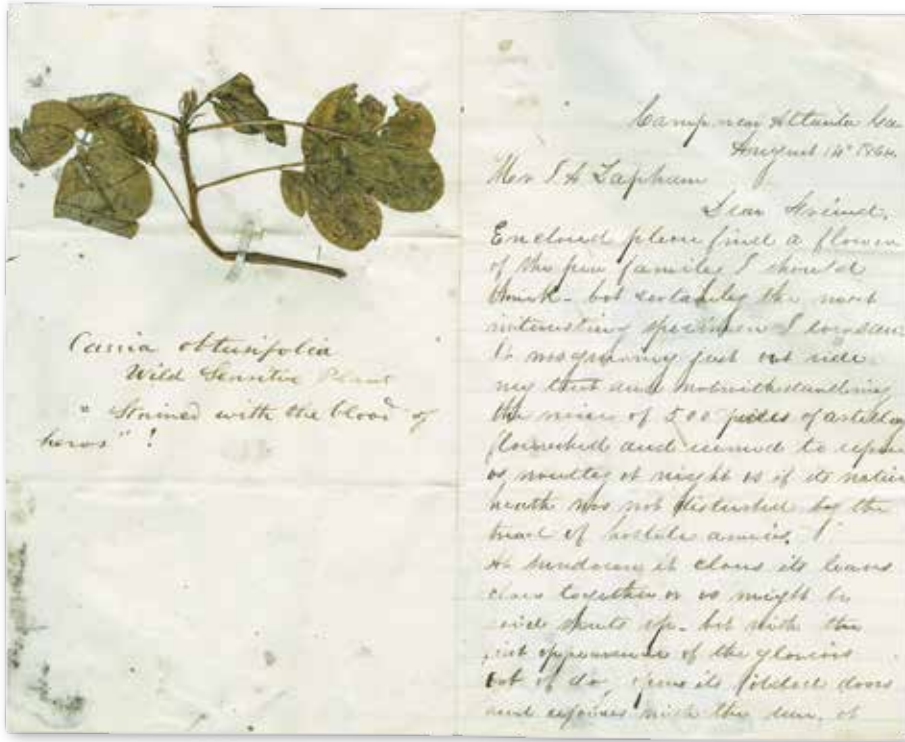 Cassia obtusifolia
Wild Sensitive Plant
" Stained with the blood of
heros" !
Camp near Atlanta Ga
August 14" 1864.
Mr I A Lapham
Dear Friend,
Enclosed please find a flower
of the pea familey I should
think - but certainley the most
interesting specimen I ever saw
It was growing just out side
my tent and notwithstanding
the noise of 500 pieces of artillery
flourished and seemed to repose
as at night as if its native
heath was not disturbed by the
tread of hostile armies.
At sundown it closes its leaves
close together or as might be
said shuts up - but with the
first appearance of the glorious
of day, opens its folded doors
and with the sun, at